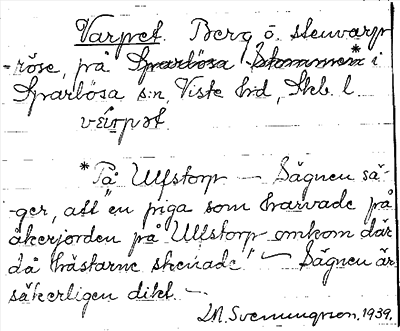 Varpet. Berg ö. stenvarp
-röse, på Sparlösa Stommen* i
Sparlösa s:n, Viste hd, Skb. l.
vȧrpət
*På Ulfstorp — Sägnen sä-
-ger, att "en piga som harvade på
åkerjorden på Ulfstorp omkom där
då hästarne skenade" — Sägnen är
säkerligen dikt. —
Svenungsson. 1939.